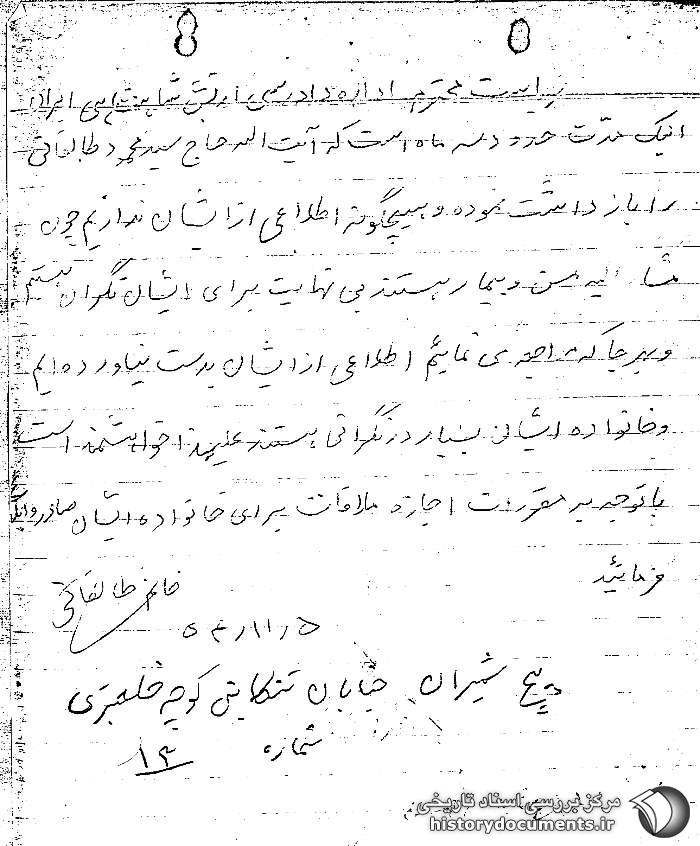 ریاست محترم اداره دادرسی ارتش شاهنشاهی ایران
اینک مدت حدود سه ماه است که آیت اله حاج سید محمود طالقانی
را بازداشت نموده و هیچگونه اطلاعی از ایشان نداریم چون
مشارالیه مسن و بیمار هستند بی نهایت برای ایشان نگران هستیم
و بهر جا که مراجعه می نمائیم اطلاعی از ایشان بدست نیاورده ایم
و خانواده ایشان بسیار در نگرانی هستند علیهذا خواهشمند است
با توجه به مقررات اجازه ملاقات برای خانواده ایشان صادر
فرمائید
خانم طالقانی
۵۴/۱۱/۵
پیچ شمیران خیابان تنکابنی کوچه قلعبری
شماره ۱۳
مرکز بررسی اسناد تاریخی
historydocuments.ir